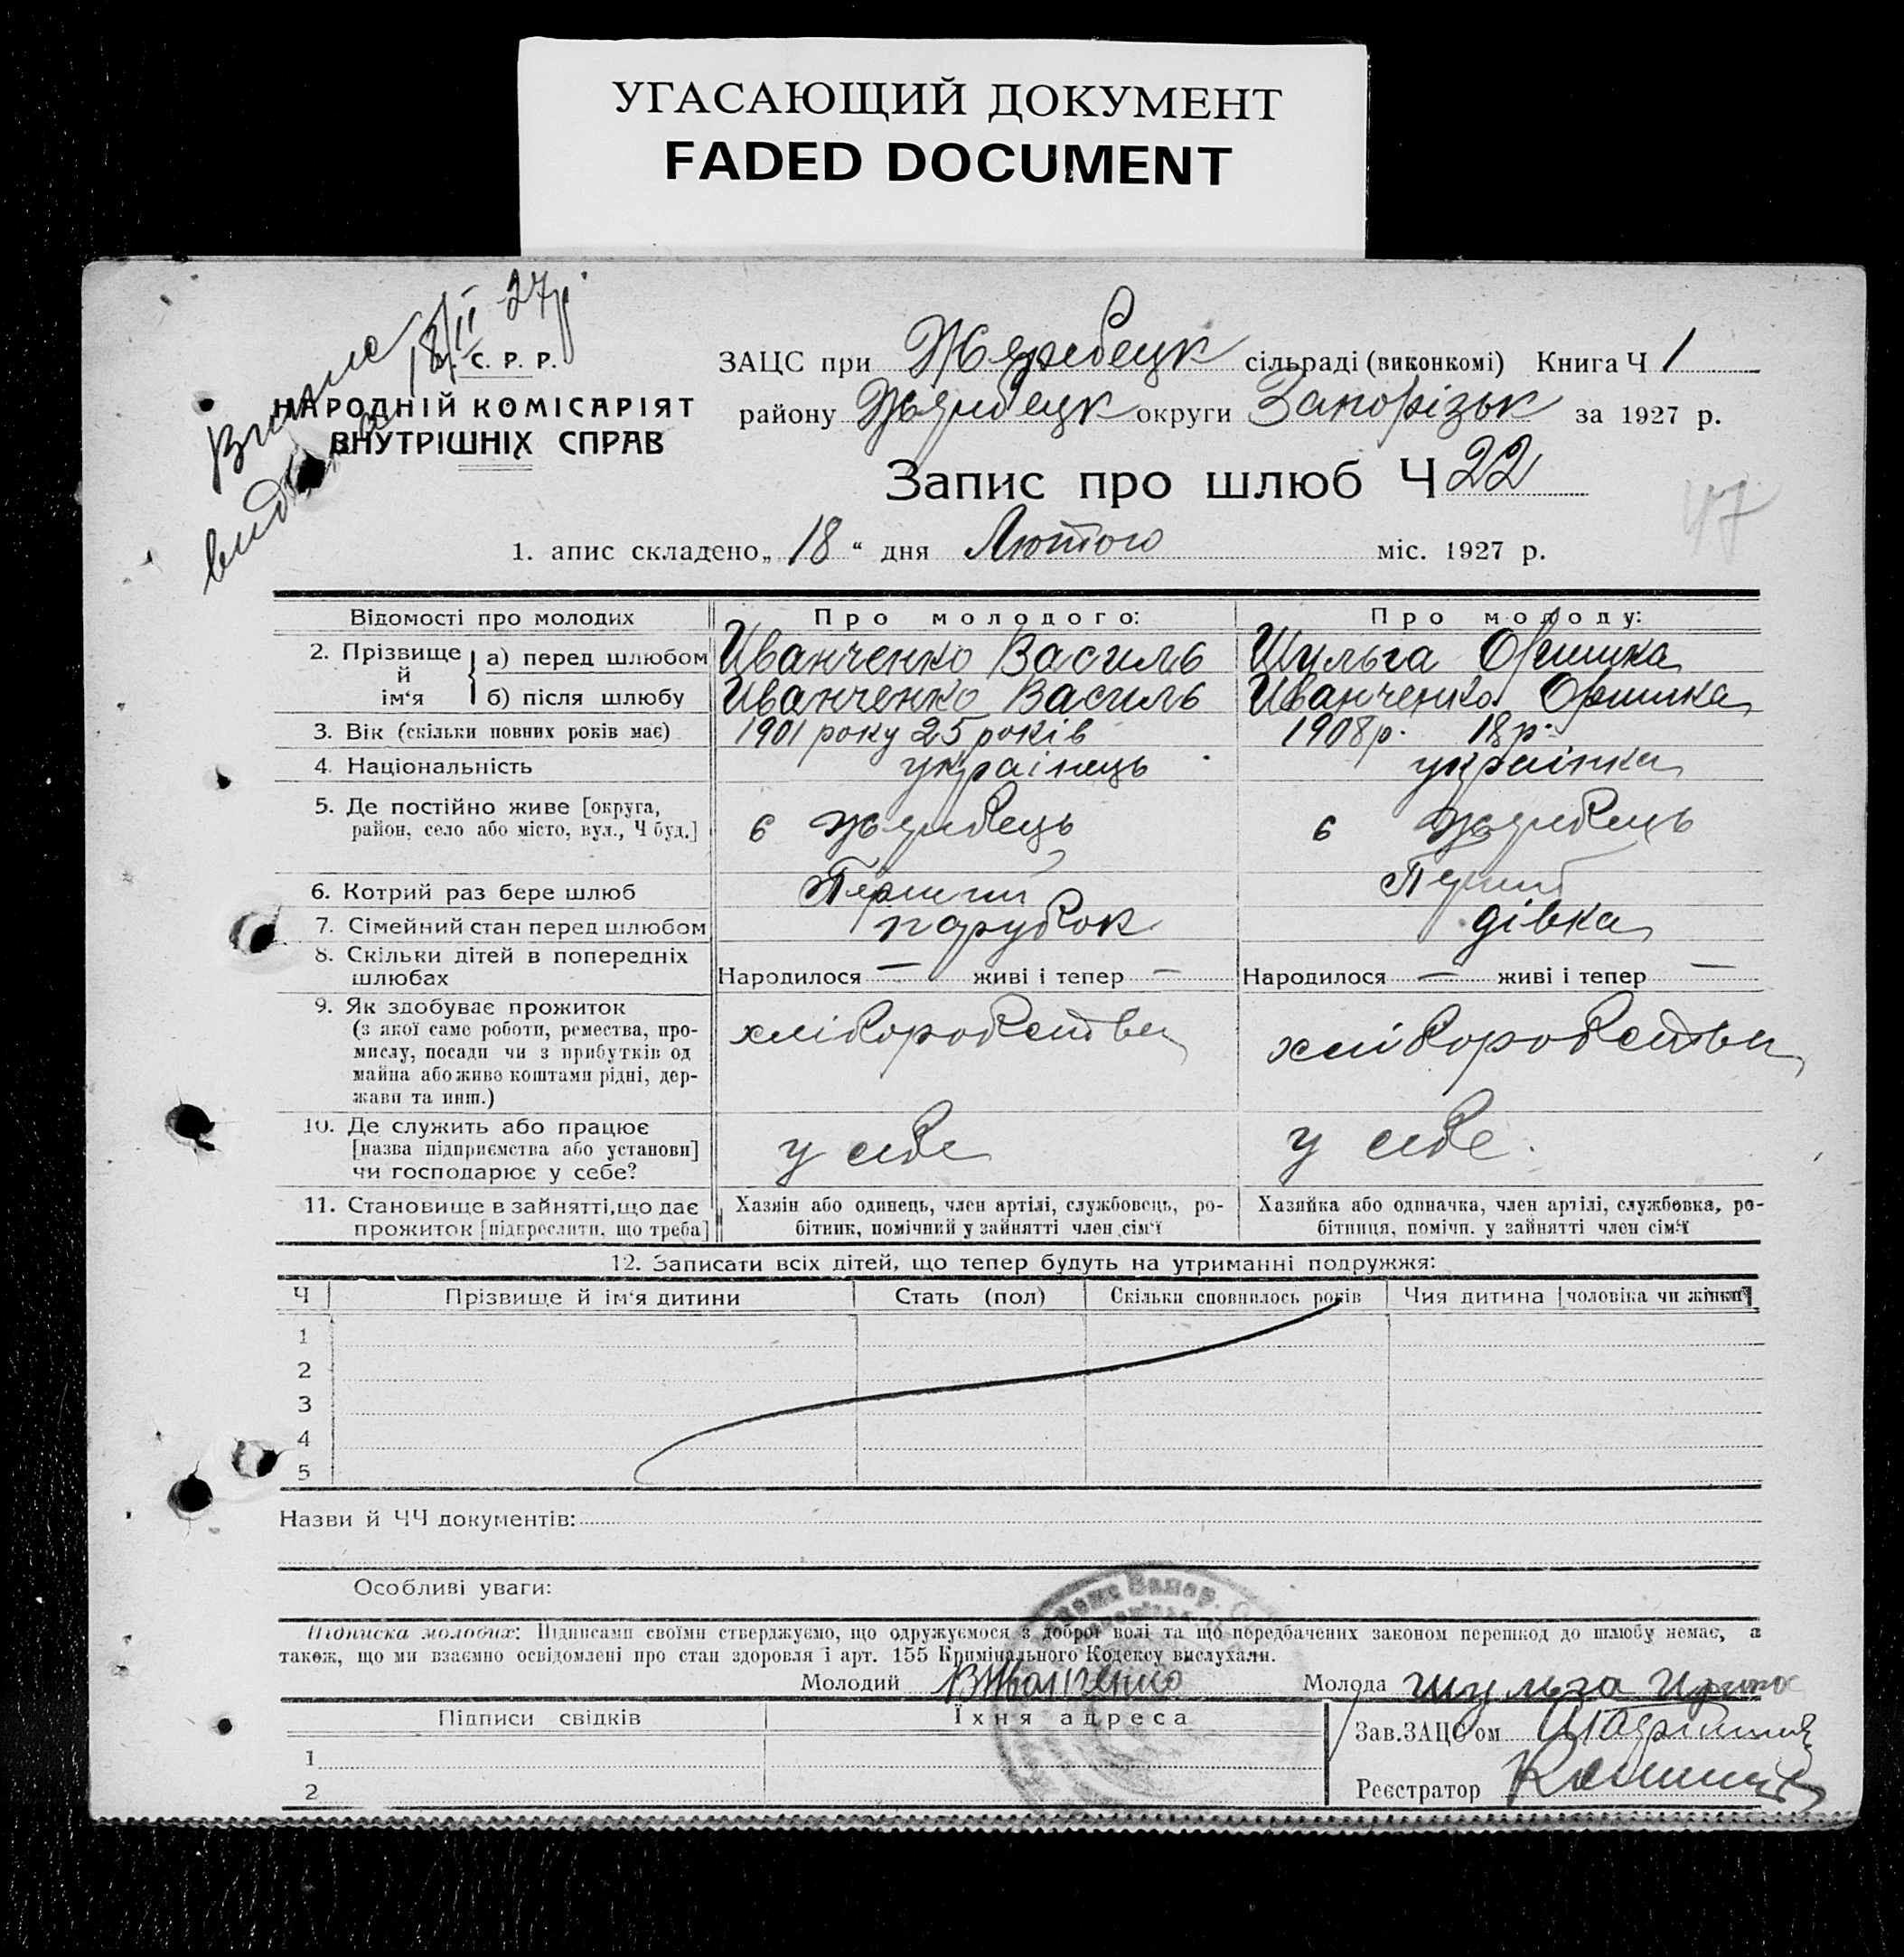 УГАСАЮЩИЙ ДОКУМЕНТ
FADED DOCUMENT
18/II 27р.
С. Р. Р.
НАРОДНІЙ КОМІСАРІЯТ
ВНУТРІШНІХ СПРАВ
ЗАЦС при Жеребецк сільраді (виконкомі) Книга Ч 1
району Жеребецк округи Запорізьк за 1927 р.
Запис про шлюб Ч 22
47
1. апис складено „ 18 “ дня Лютого міс. 1927 р.
Відомості про молодих Про молодого: Про молоду:
2. Прізвище й ім‘я а) перед шлюбом Иванченко Василь Шульга Оришка
б) після шлюбу Иванченко Василь Иванченко Оришка
3. Вік (скільки повних років має) 1901 року 25 років 1908 р. 18 р.
4. Національність українець українка
5. Де постійно живе [округа, район, село або місто, вул., Ч буд.] с Жеребець с Жеребець
6. Котрий раз бере шлюб Перший Перший
7. Сімейний стан перед шлюбом парубок дівка
8. Скільки дітей в попередніх шлюбах Народилося — живі і тепер — Народилося — живі і тепер —
9. Як здобуває прожиток
(з якої саме роботи, ремества, про-
мислу, посади чи з прибутків од
майна або живе коштами рідні, дер-
жави та инш.) хліборобства хліборобства
10. Де служить або працює
[назва підприємства або установи]
чи господарює у себе? у себе у себе.
11. Становище в зайнятті, що дає
прожиток [підкреслити, що треба]
Хазяїн або одинець, член артілі, службовець, ро-
бітник, помічний у зайнятті член сім‘ї
Хазяйка або одиначка, член артілі, службовка, ро-
бітниця, помічн. у зайнятті член сім‘ї
12. Записати всіх дітей, що тепер будуть на утриманні подружжя:
Ч Прізвище й ім‘я дитини Стать (пол) Скільки сповнилось років Чия дитина [чоловіка чи жінки]
1
2
3
4
5
Назви й ЧЧ документів:
Особливі уваги:
Підписка молодих: Підписами своїми стверджуємо, що одружуємося з доброї волі та що передбачених законом перешкод до шлюбу немає, а
також, що ми взаємно освідомлені про стан здоровля і арт. 155 Кримінального Кодексу вислухали.
Молодий В Иванченко Молода Шульга
Підписи свідків Їхня адреса
Зав. ЗАЦС‘ом
1
Реєстратор
2